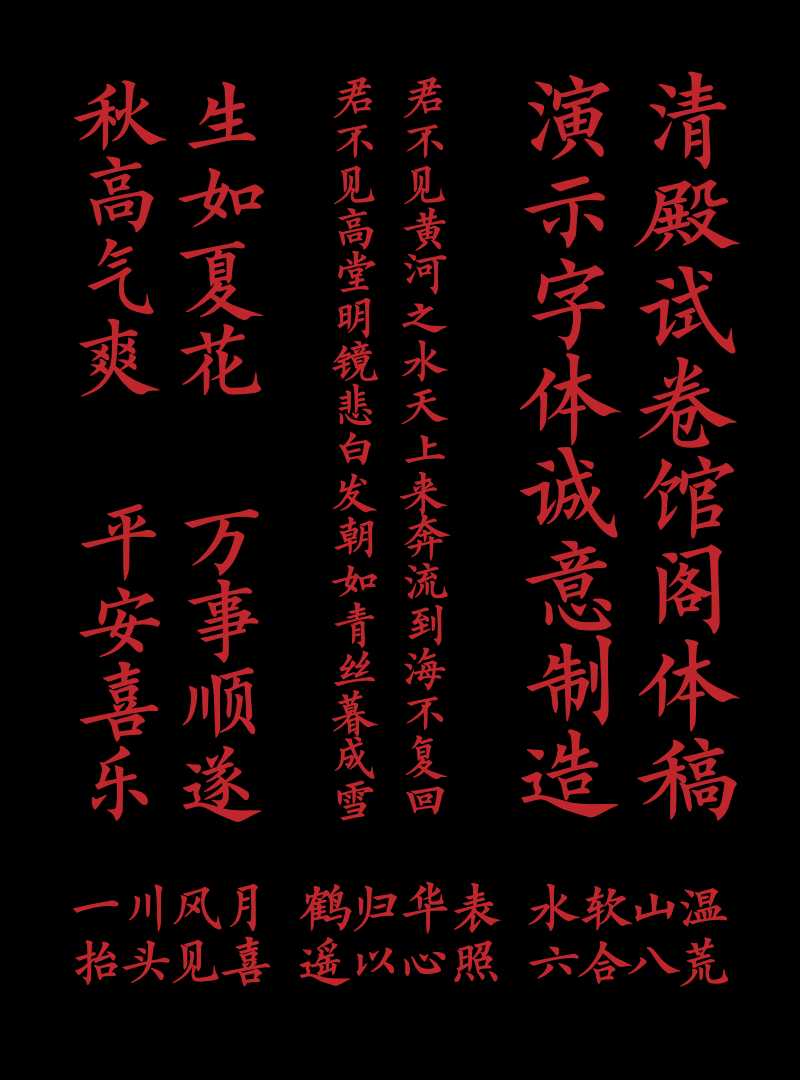 清殿试卷馆阁体稿
演示字体诚意制造
君不见黄河之水天上来奔流到海不复回
君不见高堂明镜悲白发朝如青丝暮成雪
生如夏花
秋高气爽
万事顺遂
平安喜乐
一川风月
抬头见喜
鹤归华表
遥以心照
水软山温
六合八荒